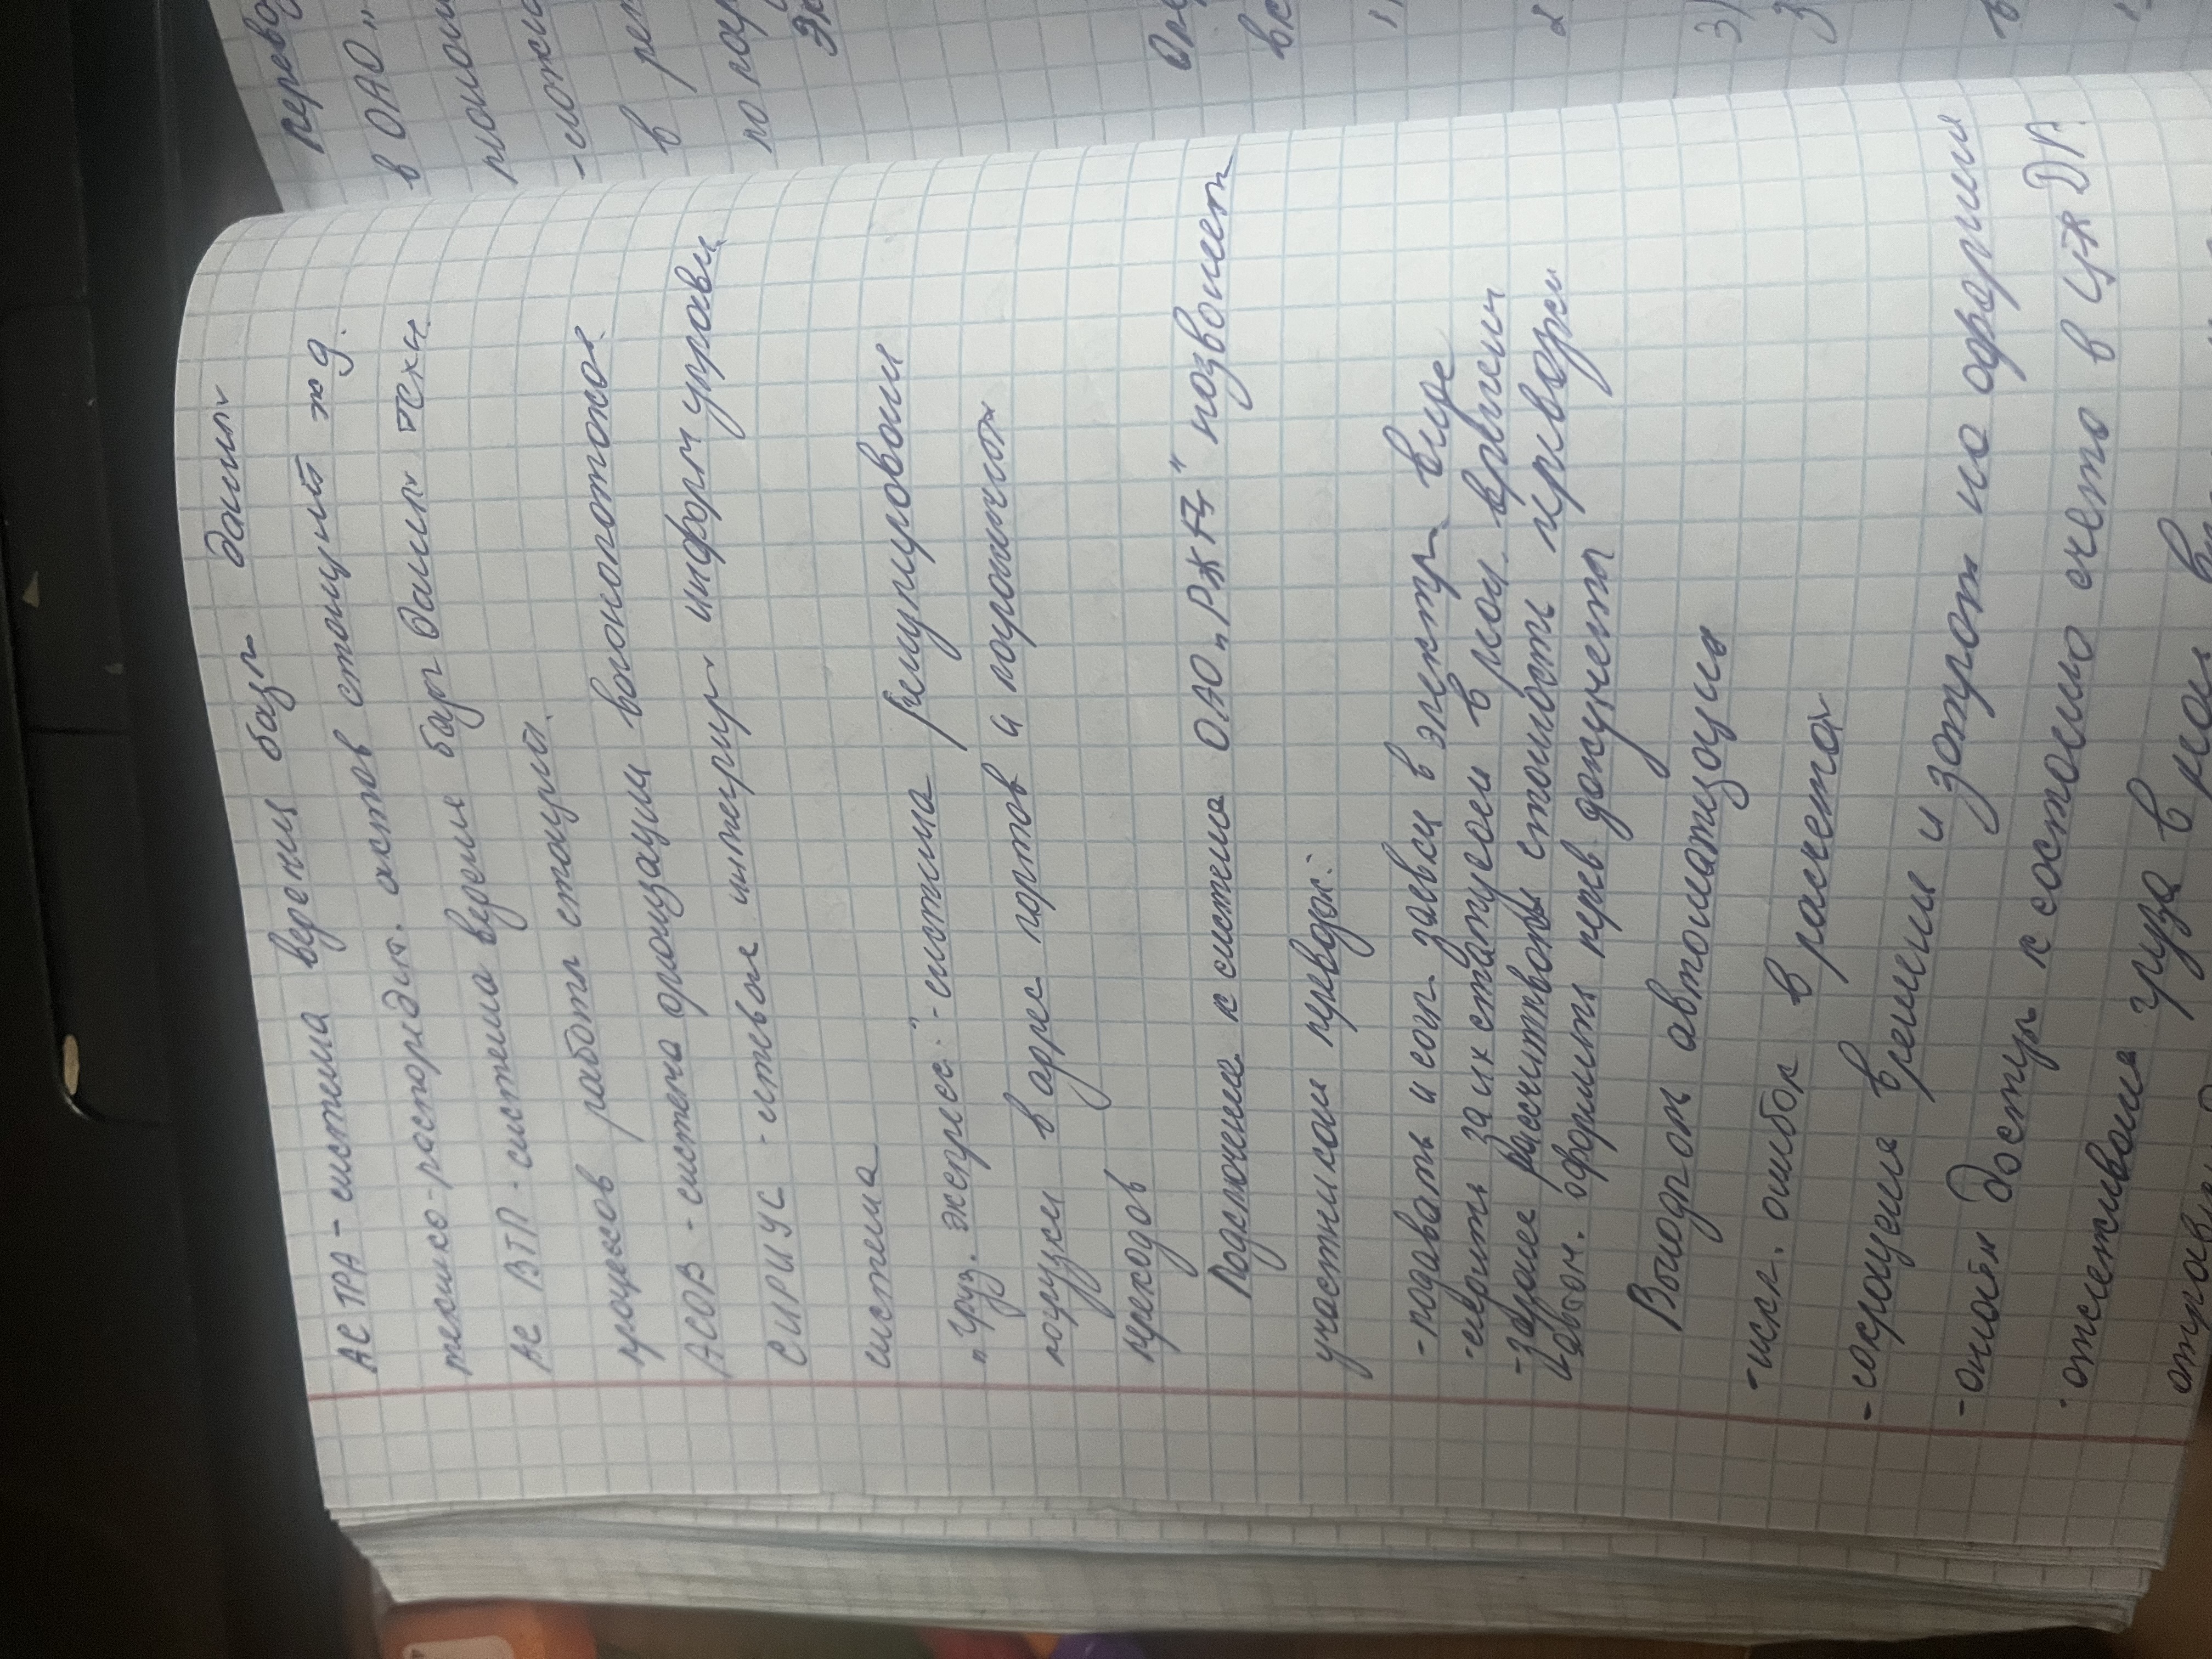 АС ТРА - система ведения базы данных
технико-распорядит. актов станций жд.
АС ВТП - система ведения базы данных техн.
процессов работы станций.
АСОВ - система организации вагонопотоков
СИРИУС - сетевая интегрир. информ управл.
система
"Груз. экспресс" - система регулирования
погрузки в адрес портов и погранических
переходов
Подключение к система ОАО "РЖД" позволяет
участникам перевозок:
- подавать и согл. заявки в электр. виде
- следить за их статусом в реал. времени
- заранее рассчитывать стоимость перевозки
автом. оформить перев документы
Выгоды от автоматизации
- искл. ошибок в расчетах
- сокращение времени и затрат на оформлен
- онлайн доступ к состоянию счета в ЦЖДР.
- отслеживание груза в реал.
перево
в ОАО "
в
по